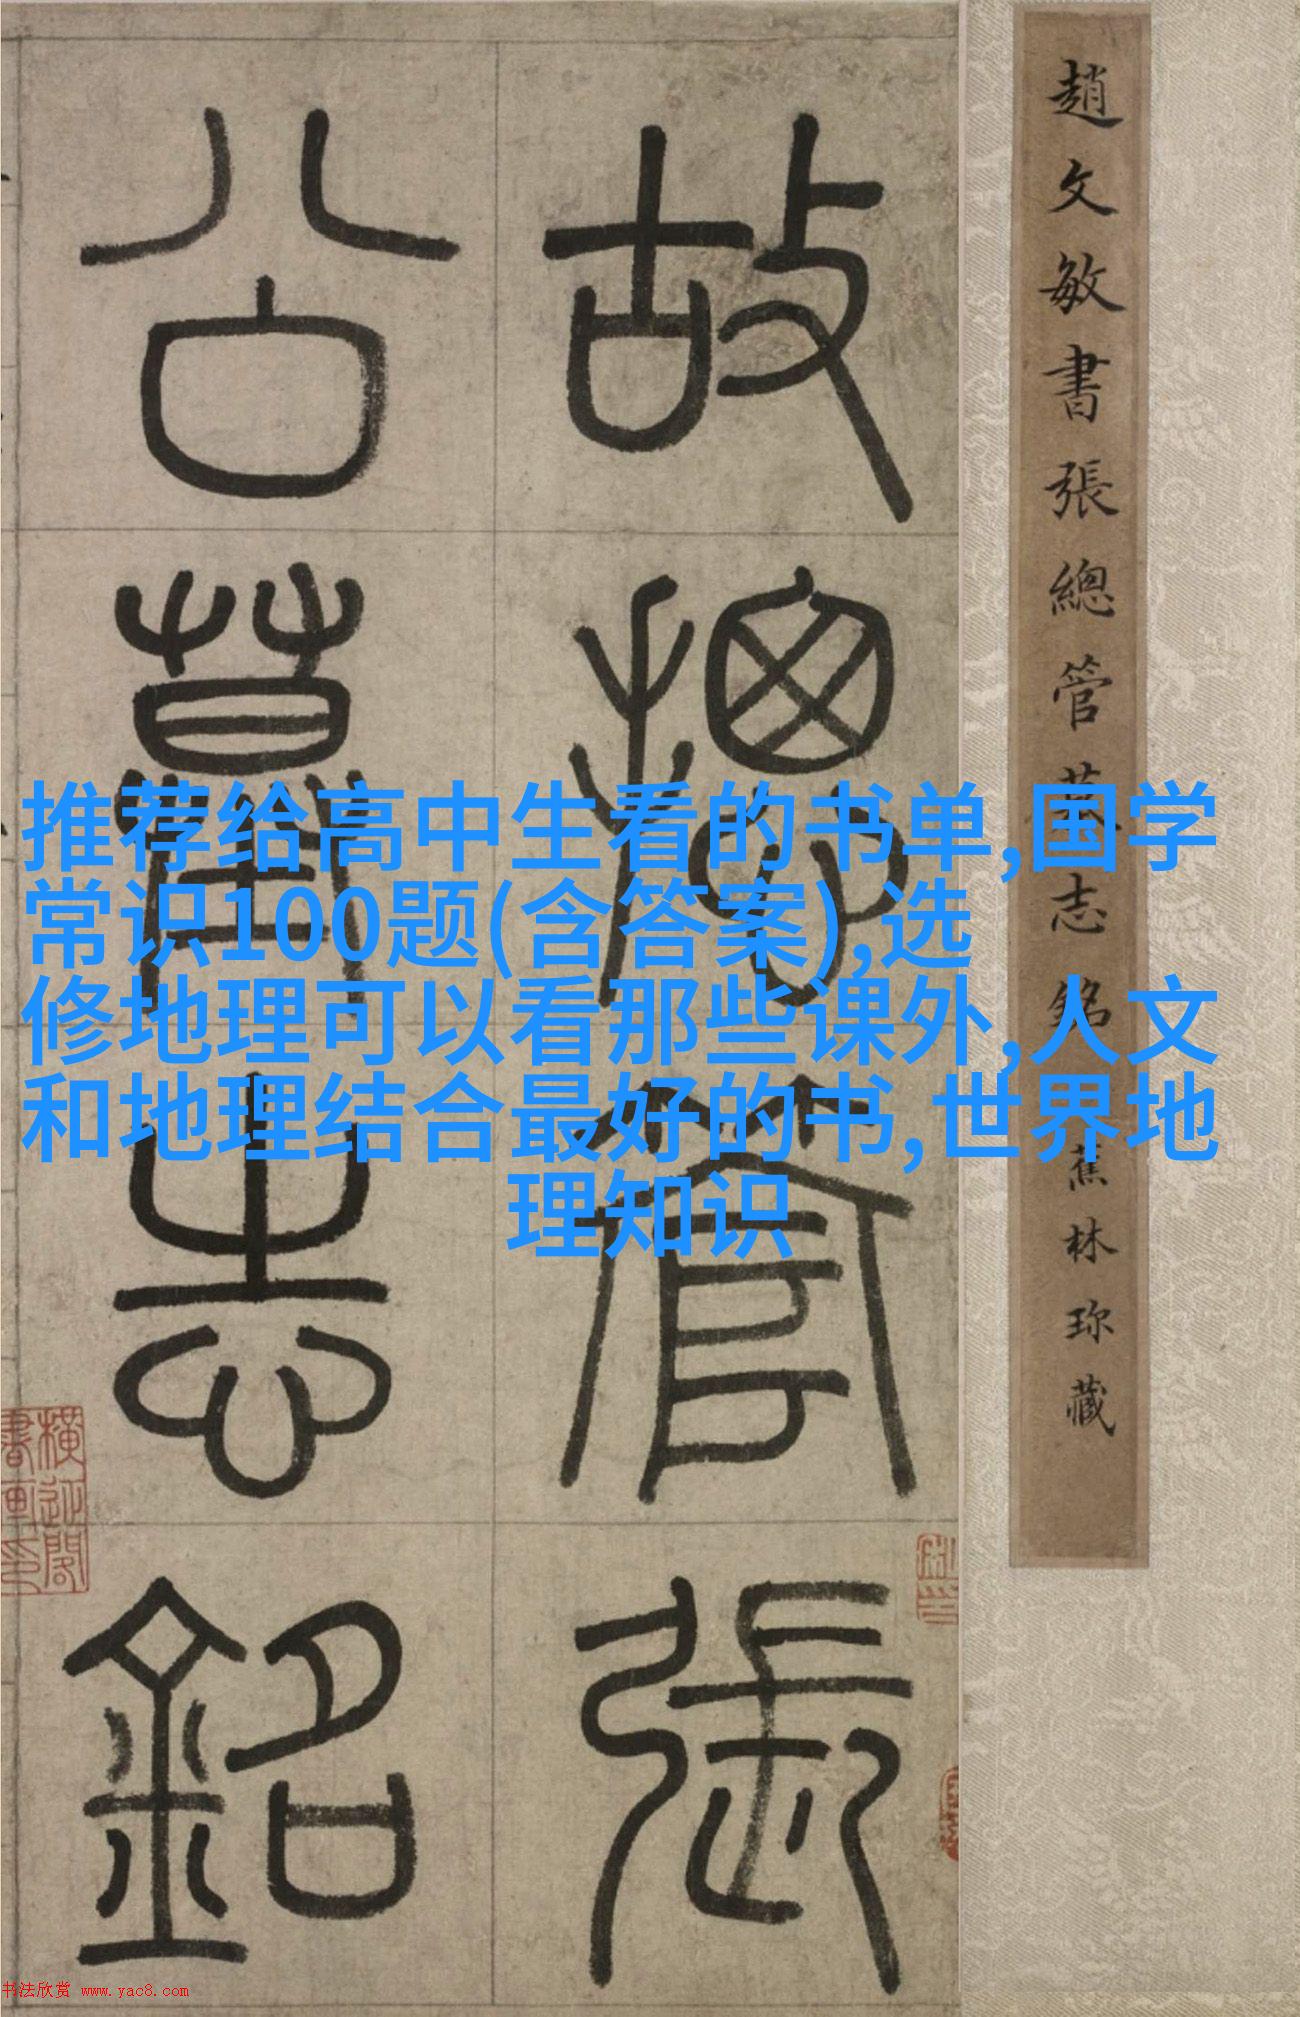 趙文敏書張總管墓志銘 蕉林珍藏
故摠管張
公墓志銘
推荐给高中生看的书单,国学
常识100题(含答案),选
修地理可以看那些课外,人文
和地理结合最好的书,世界地
理知识
书法欣赏 www.yac8.com